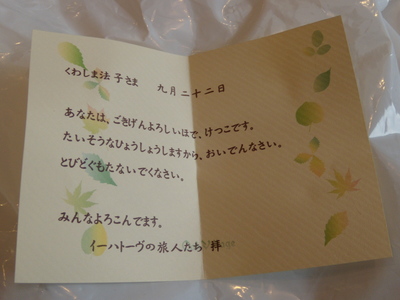 くわしま法子さま　九月二十二日
あなたは、ごきげんよろしいほで、けつこです。
たいそうなひょうしょうしますから、おいでんなさい。
とびどぐもたないでくなさい。
みんなよろこんでます。
イーハトーヴの旅人たち 拝